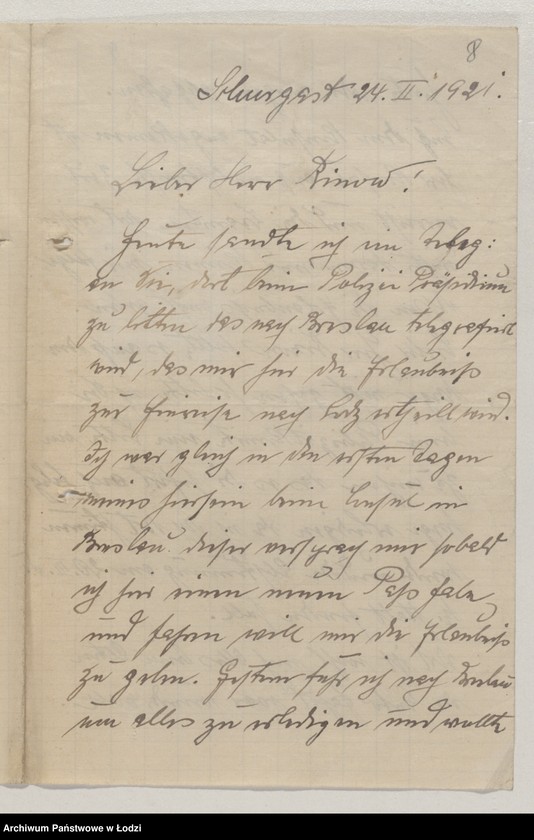 8
Schurgast 24. II. 1921.
Lieber Herr Rinow!
Heute sandte ich ein Teleg:
an Sie, dort beim Polizei Präsidium
zu bitten das nach Breslau telegrafirt
wird, das mir hier die Erlaubniß
zur Einreise nach Lodz ertheilt wird.
Ich war gleich in den ersten Tagen
meines Hierseins beim Consul in
Breslau. dieser versprach mir sobald
ich hier einen neuen Paß habe
und fahren will mir die Erlaubniß
zu geben. Gestern fuhr ich nach Breslau
um alles zu erledigen und wollte
Archiwum Państwowe w Łodzi